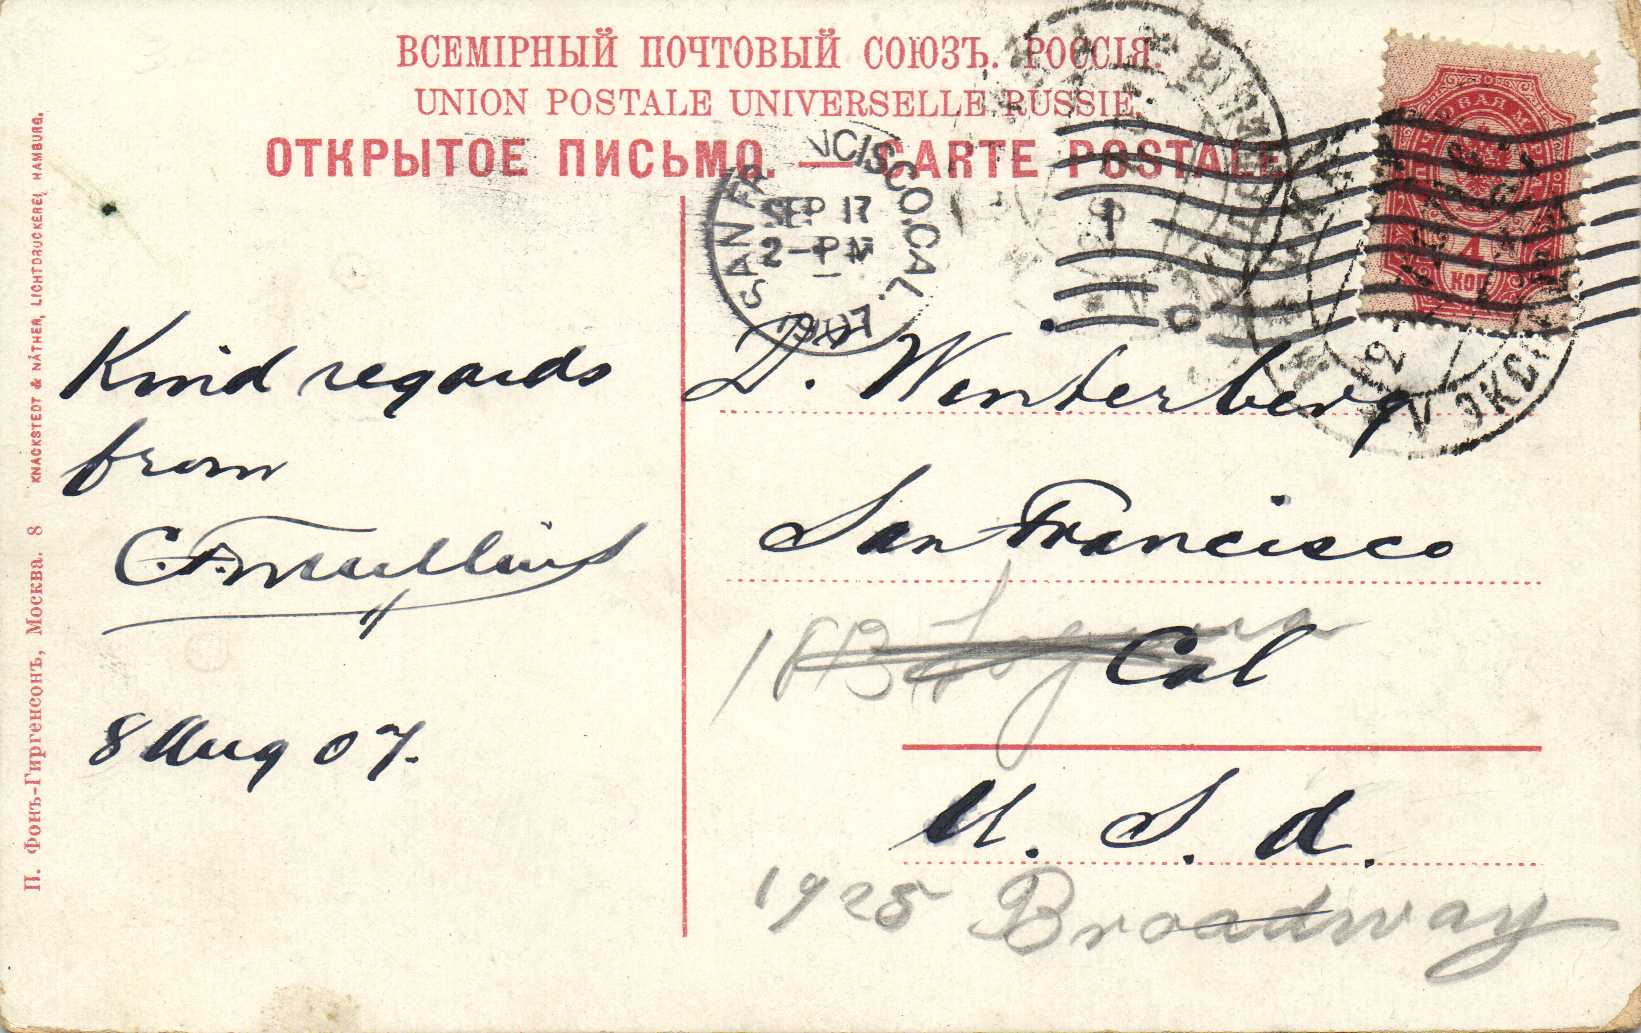 ВСЕМІРНЫЙ ПОЧТОВЫЙ СОЮЗЪ. РОССІЯ.
UNION POSTALE UNIVERSELLE RUSSIE.
ОТКРЫТОЕ ПИСЬМО. — CARTE POSTALE
SAN FR NCISCO, CAL.
SEP 17
2-PM
1907
4
КОП
Kind regards
from
C. F. Mullins
8 Aug 07.
D. Wenterberg
San Francisco
Cal
U. S. A.
1925 Broadway
П. Фонъ-Гиргенсонъ, Москва. 8 KNACKSTEDT & NÄTHER, LICHTDRUCKEREI, HAMBURG.